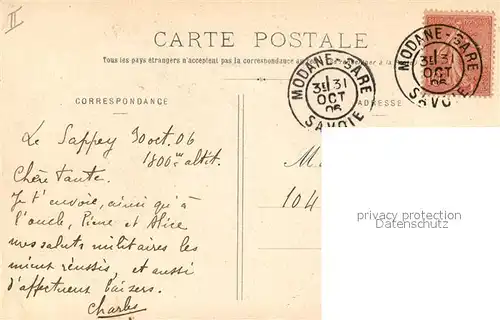 II
CARTE POSTALE
Tous les pays étrangers n'acceptent pas la correspondance au
MODANE-GARE
3E 31
OCT
06
SAVOIE
MODANE-GARE
3E 31
OCT
06
SAVOIE
CORRESPONDANCE
ADRESSE
Le Sappey 30 oct. 06
1800m altit.
Chère tante.
Je t'envoie, ainsi qu'à
l'oncle, Pierre et Alice
mes saluts militaires les
mieux réussis, et aussi
d'affectueux baisers.
Charles
M
104
privacy protection
Datenschutz